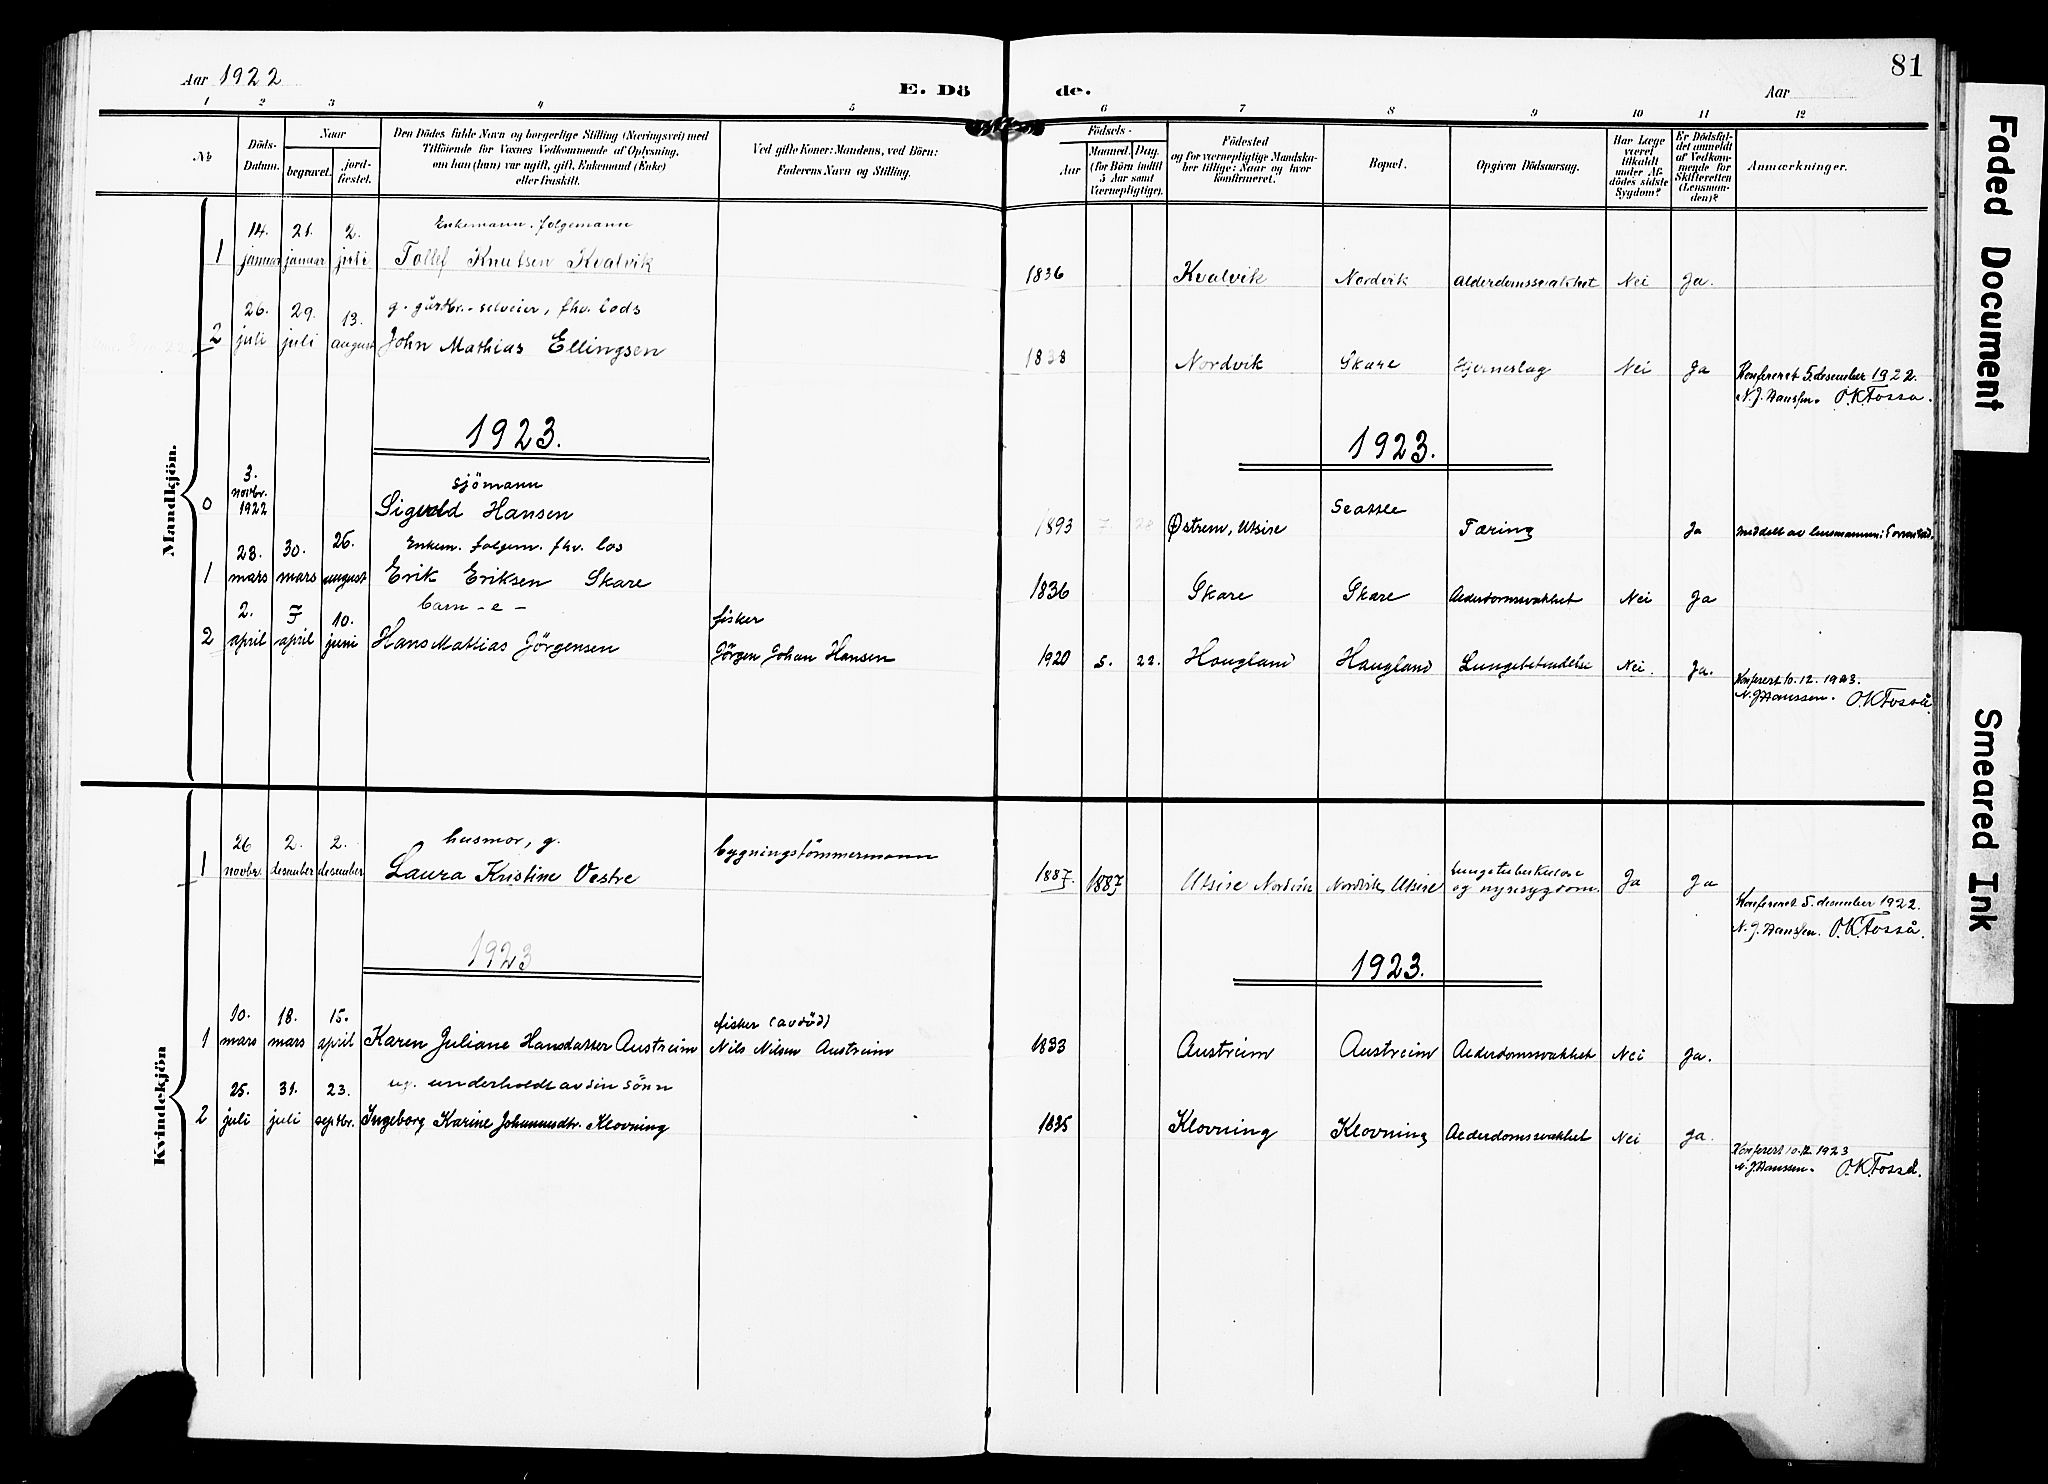 81
Aar 1922
E. Döde.
Aar
1 2 3 4 5 6 7 8 9 10 11 12
No
Döds-Datum.
Naar
begravet.
jord-fæstet.
Den Dödes fulde Navn og borgerlige Stilling (Næringsvei) med
Tilföiende for Voxnes Vedkommende af Oplysning,
om han (hun) var ugift, gift, Enkemand (Enke)
eller fraskilt.
Ved gifte Koner: Mandens, ved Börn:
Faderens Navn og Stilling.
Födsels-
Aar
Maaned. Dag.
(for Börn indtil
5 Aar samt
Værnepligtige).
Födested
og for værnepligtige Mandska-
ber tillige: Naar og hvor
konfirmeret.
Bopæl.
Opgiven Dödsaarsag.
Har Læge
været
tilkaldt
under Af-
dödes sidste
Sygdom?
Er Dödsfal-
det anmeldt
af Vedkom-
mende for
Skifteretten
(Lensman-
den)?
Anmærkninger.
Mandkjön.
Enkemann. folgemann
1 14. januar 21. januar 2. juli Tollef Knutsen Kvalvik 1836 Kvalvik Nordvik Alderdomssvakhet Nei Ja.
g. gårdbr.-selveier, fhv. lods
2 26. juli 29. juli 13. august John Mathias Ellingsen 1838 Nordvik Skare Hjerneslag Nei Ja
Konfereret 5. desember 1922.
N. J. Hanssen. O.K.Fosså.
1923.
1923.
sjömann
0 3. novbr. 1922 Sigvald Hansen 1893 7 28 Østrem, Utsire Seattle Tæring Ja meddelt av lensmannen i Torvastad.
Enkem. folgem. fhv. los
1 28. mars 30. mars 26. august Erik Eriksen Skare 1836 Skare Skare Alderdomssvakhet Nei Ja
barn -e-
fisker
2 2. april 7 april 10. juni Hans Mathias Jörgensen Jörgen Johan Hansen 1920 5. 22. Haugland Haugland Lungebetendelse Nei. Ja.
Konferert 10.12.1923.
N. J. Hanssen. O.K.Fosså.
Kvindekjön
husmor, g.
bygningstömmermann
1 26 novbr. 2. desember 2. desember Laura Kristine Vestre 1887. 1887 Utsire Nordvik Nordvik, Utsire Lungetuberkulose og nyresygdom. Ja Ja
Konfereret 5. desember 1922.
N. J. Hanssen. O.K.Fosså.
1923
1923.
fisker (avdöd)
1 10. mars 18. mars 15. april Karen Juliane Hansdatter Austreim Nils Nilsen Austreim 1833 Austreim Austreim Alderdomssvakhet Nei Ja.
ug. underholdt av sin sönn
2 25. juli 31. juli 23. septbr. Ingeborg Karine Johannesdtr. Klovning 1835 Klovning Klovning Alderdomssvakhet Nei Ja.
Konferert 10.12.1923
N. J. Hanssen. O.K.Fosså.
Faded Document
Smeared Ink